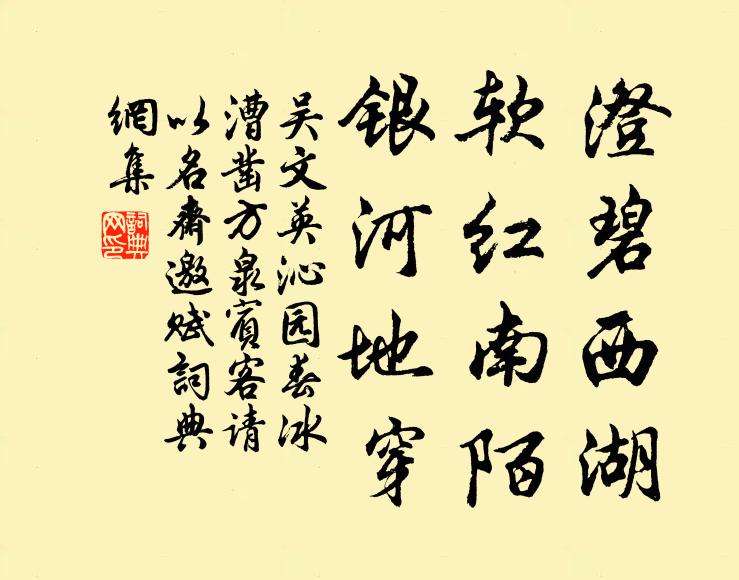 澄碧西湖
软红南陌
银河地穿
吴文英沁园春冰
漕凿方泉宾客请
以名斋邀赋词典
网集
词典网印